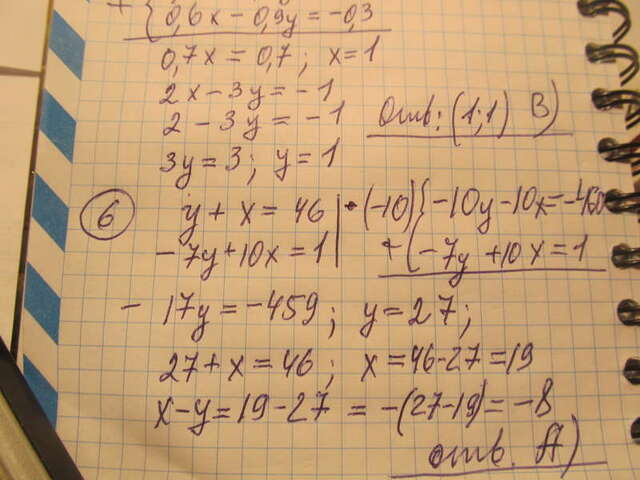 + { 0,6x - 0,9y = -0,3
0,7x = 0,7; x=1
2x - 3y = -1
2 - 3y = -1
Отв: (1;1) В)
3y = 3; y = 1
6
y + x = 46 | • (-10) { -10y - 10x = -460
-7y + 10x = 1 | + { -7y + 10x = 1
- 17y = -459; y = 27;
27 + x = 46; x = 46 - 27 = 19
x - y = 19 - 27 = -(27-19) = -8
отв. А)